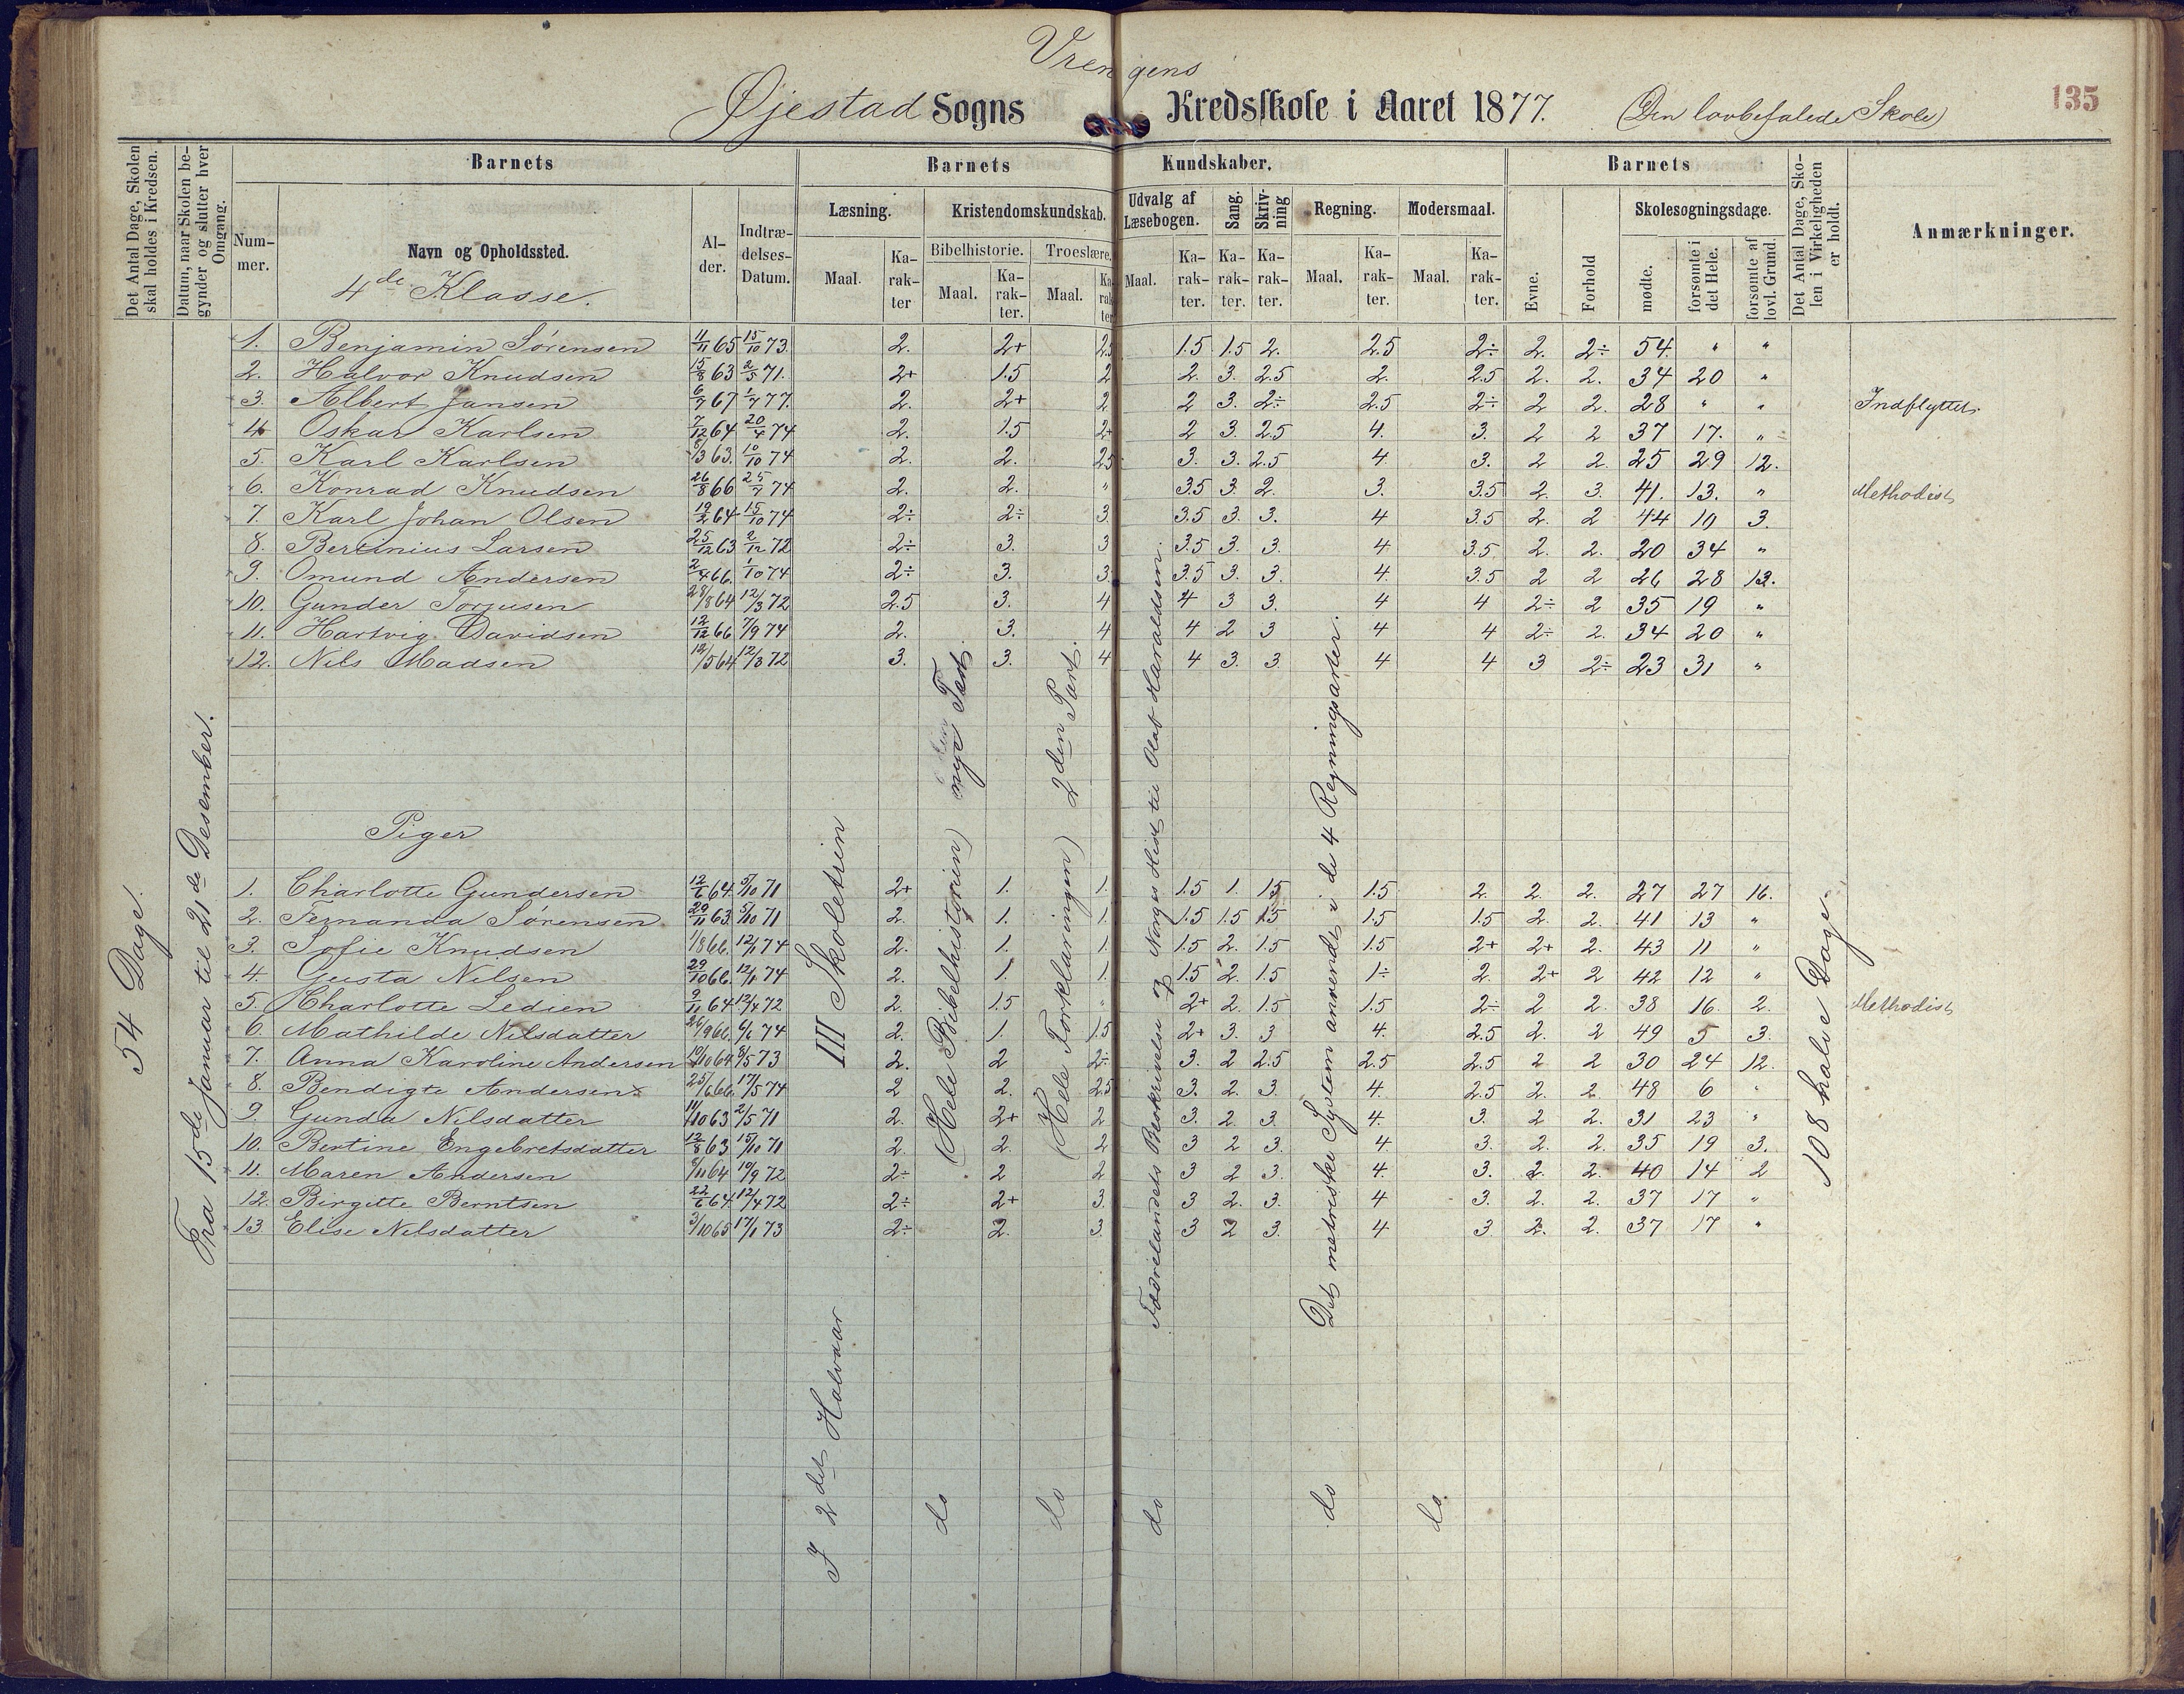 Vrengens
Øjestad Sogns Kredsskole i Aaret 1877. (Den lovbefalede Skole)
135
Det Antal Dage, Skolen skal holdes i Kredsen.
Datum, naar Skolen begynder og slutter hver Omgang.
Barnets
Nummer.
Navn og Opholdssted.
4de Klasse.
Alder.
Indtrædelses-Datum.
Barnets Kundskaber.
Læsning.
Maal.
Karakter
Kristendomskundskab.
Bibelhistorie.
Maal.
Karakter.
Troeslære.
Maal.
Karakter
Udvalg af Læsebogen.
Maal.
Karakter.
Sang.
Karakter.
Skrivning
Karakter.
Regning.
Maal.
Karakter.
Modersmaal.
Maal.
Karakter.
Barnets
Evne.
Forhold
Skolesøgningsdage.
mødte.
forsømte i det Hele.
forsømte af lovl. Grund.
Det Antal Dage, Skolen i Virkeligheden er holdt.
Anmærkninger.
1. Benjamin Sørensen 11/11 65 15/10 73. 2. 2+ 2.5 1.5 1.5 2. 2.5 2÷ 2. 2÷ 54. " "
2. Halvor Knudsen 15/8 63 2/5 71. 2+ 1.5 2 2. 3. 2.5 2. 2.5 2. 2. 34 20 "
3. Albert Jansen 6/7 67 1/7 77. 2. 2+ 2 2 3. 2÷ 2.5 2÷ 2 2. 28 " " Indflytter
4. Oskar Karlsen 7/12 64 20/4 74 2. 1.5 2+ 2 3. 2.5 4. 3. 2 2 37 17. "
5. Karl Karlsen 8/3 63. 10/10 74 2. 2. 2.5 3. 3. 2.5 4. 3. 2 2. 25 29 12.
6. Konrad Knudsen 26/8 66 25/7 74 2. 2. " 3.5 3. 2. 3. 3.5 2. 3. 41. 13. " Methodist
7. Karl Johan Olsen 19/2 64 15/10 74 2÷ 2÷ 3. 3.5 3. 3. 4 3.5 2. 2 44 10 3.
8. Bertinius Larsen 25/12 63 2/12 72 2÷ 3. 3 3.5 3. 3. 4 3.5 2. 2. 20 34 "
9. Omund Andersen 2/4 66. 1/10 74 2÷ 3. 3. 3.5 3. 3. 4. 3.5 2 2 26 28 13.
10. Gunder Torjusen 28/8 64 12/3 72 2.5 3. 4 4 3 3. 4 4 2÷ 2 35 19 "
11. Hartvig Davidsen 12/12 66 7/9 74 2. 3. 4 4 2 3 4 4 2÷ 2. 34 20 "
12. Nils Madsen 18/5 64 12/3 72 3. 3. 4 4 3. 3. 4 4 3 2÷ 23 31 "
Piger
1. Charlotte Gundersen 12/6 64. 5/10 71 2+ 1. 1. 1.5 1. 1.5 1.5 2. 2. 2. 27 27 16.
2. Fernanda Sørensen 29/11 63. 5/10 71 2. 1. 1. 1.5 1.5 1.5 1.5 1.5 2. 2. 41 13 "
3. Sofie Knudsen 1/8 66. 12/1 74 2. 1. 1. 1.5 2. 1.5 1.5 2+ 2+ 2. 43 11 "
4. Gusta Nilsen 29/10 66. 12/1 74 2. 1. 1. 1.5 2. 1.5 1÷ 2. 2+ 2 42 12 "
5. Charlotte Ledien 9/11 64 12/4 72 2. 1.5 " 2+ 2. 1.5 1.5 2÷ 2 2. 38 16. 2. Methodist
6. Mathilde Nilsdatter 26/9 66. 6/6 74 2. 1. 1.5 2+ 3. 3 4. 2.5 2. 2 49 5 3.
7. Anna Karoline Andersen 19/10 64 8/5 73 2. 2 2÷ 3. 2 2.5 2.5 2.5 2 2 30 24 12.
8. Bendigte Andersen 25/6 66. 17/5 74 2 2. 2.5 3. 2. 3. 4. 2.5 2. 2. 48 6 "
9. Gunda Nilsdatter 11/10 63 2/5 71 2. 2+ 2 3. 2. 3. 4. 3. 2 2. 31 23 "
10. Bertine Engebretsdatter 12/8 63 15/10 71 2. 2. 2 3 2 3. 4. 3. 2. 2. 35 19 3.
11. Maren Andersen 8/11 64 19/9 72 2÷ 2 2 3 2 3. 4. 3. 2. 2. 40 14 2
12. Birgitte Berntsen 22/6 64. 12/4 72 2÷ 2+ 3. 3 2. 3. 4 3. 2. 2. 37 17 "
13. Elise Nilsdatter 3/10 65 17/1 73 2÷ 2. 3. 3 2 3. 4 3 2. 2. 37 17 "
54 Dage.
Fra 15de Januar til 21de Desember.
III Skoletrin
(Hele Bibelhistorien) nye Test
(Hele Forklaringen) 2den Part.
Fædrelandets Beskrivelse og Norges Hist til Olaf Haraldsen.
Det metriske System anvendt i de 4 Regningsarter.
108 halve Dage.
I 2det Halvaar
do
do
do
do
do